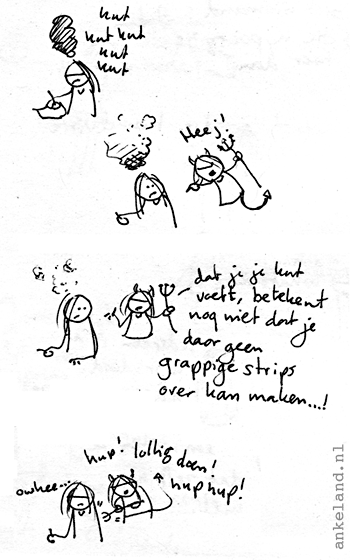 kut
kut kut
kut
kut
Heej!
dat je je kut
voelt, betekent
nog niet dat je
daar geen
grappige strips
over kan maken...!
hup! lollig doen!
hup hup!
owhee...
ankeland.nl